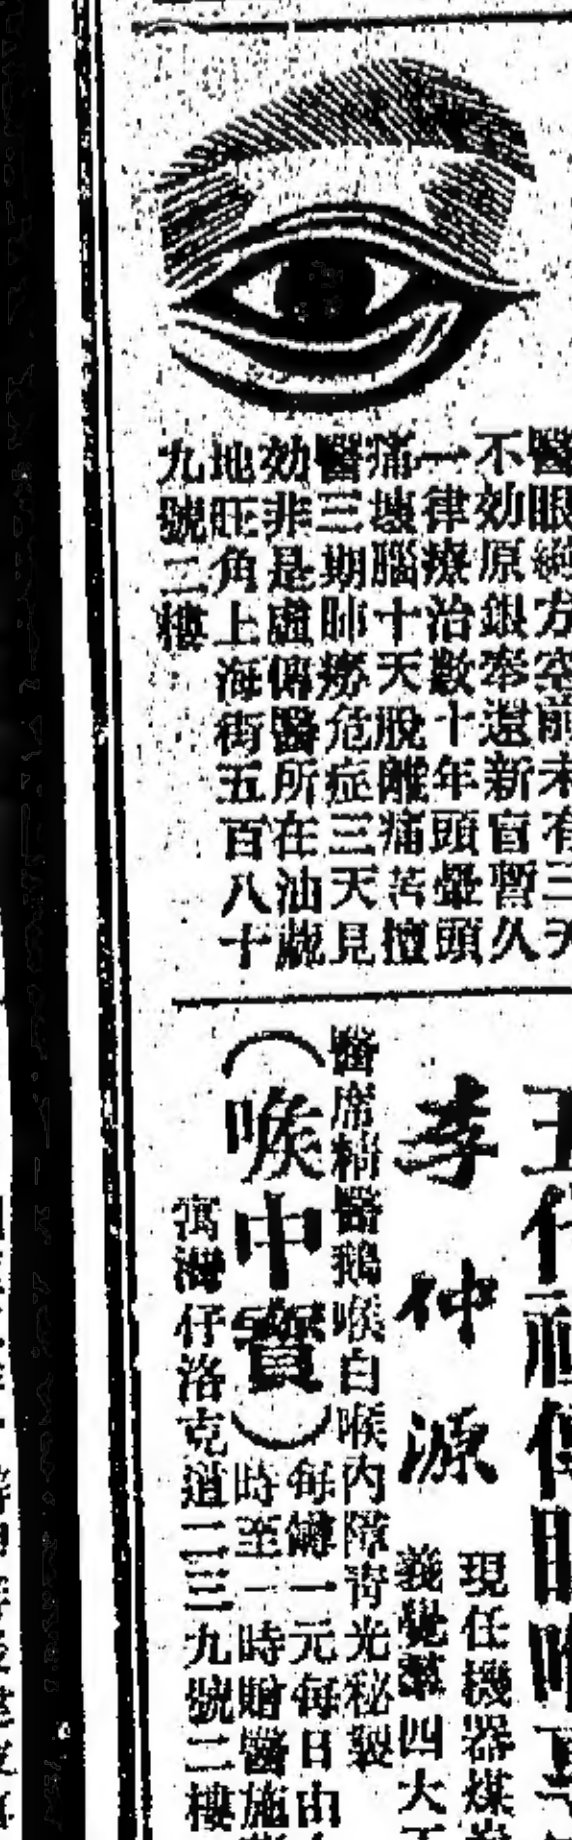 醫眼方空前未有三天
不効原銀奉還新盲暫久
一律療治數十年頭暈頭
痛壞腦十天脫離痛苦擅
醫三期肺癆危症三天見
効非是虛傳醫所在油蔴
地旺角上海街五百八十
九號二樓
五代祖傳眼喉
李仲源
現任機器煤
義覺羣四大
醫席精醫鵝喉白喉內障青光秘製
(喉中寶)
每罇一元每日由
時至一時贈醫施
寓灣仔洛克道二三九號二樓